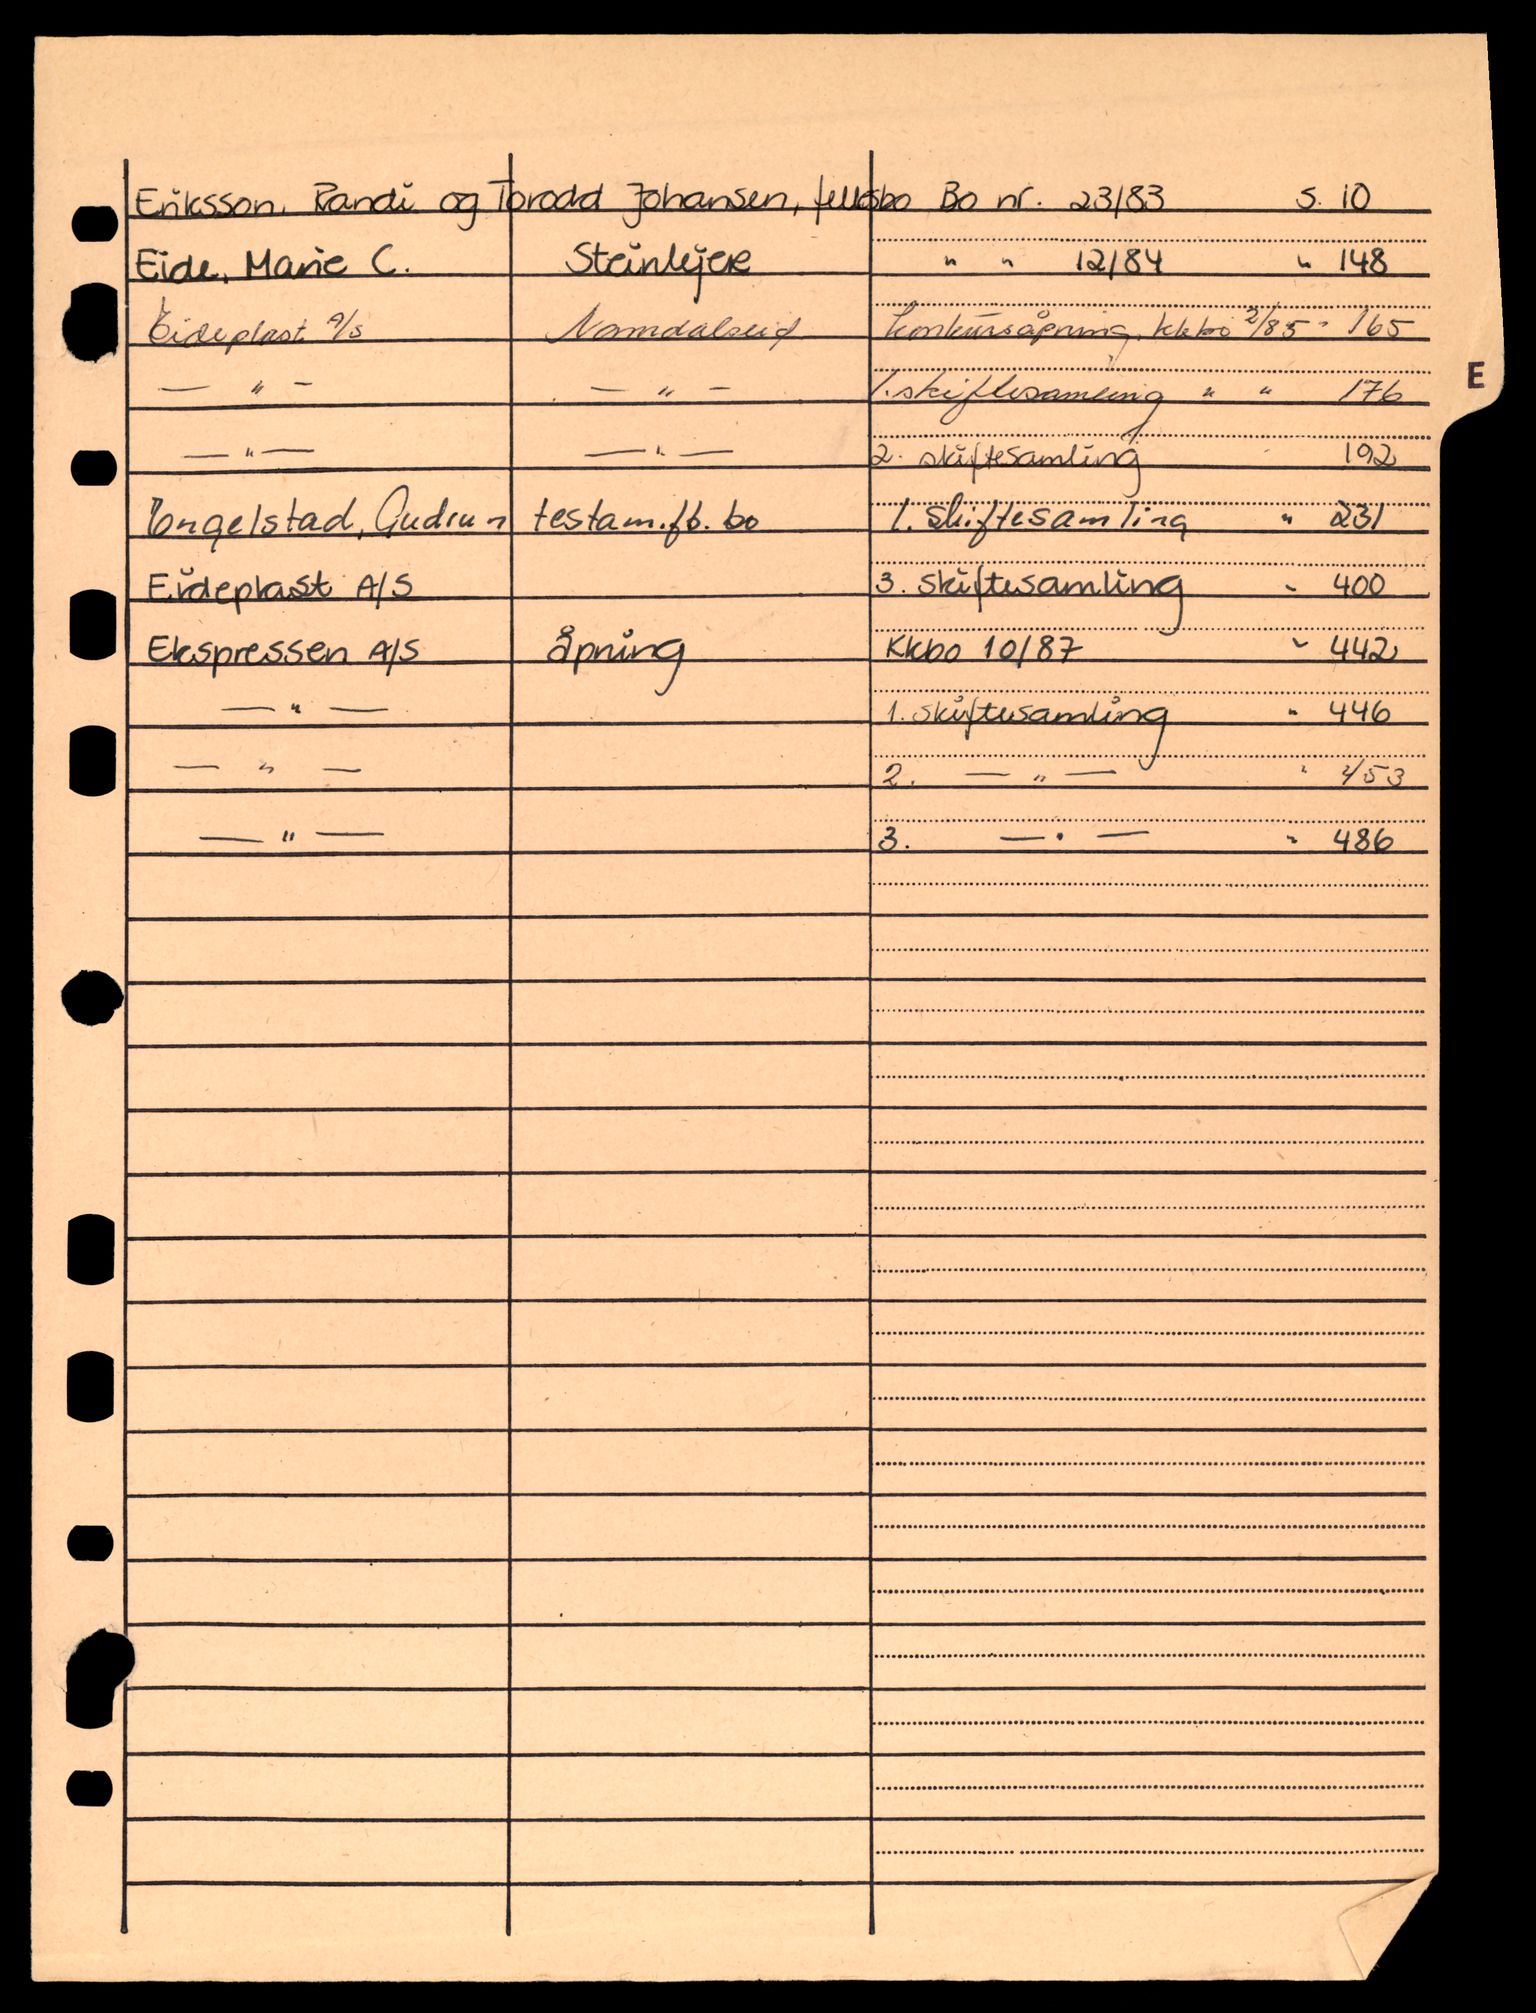 Eriksson, Randi og Torodd Johansen, fellesbo Bo nr. 23/83 s. 10
Eide, Marie C. Steinkjer " " 12/84 " 148
Eideplast A/S Namdalseid Konkursåpning, kkbo 2/85 " 165
— " — — " — 1. skiftesamling " " 176
— " — — " — 2. skiftesamling 192
Engelstad, Gudrun testam.fb. bo 1. Skiftesamling " 231
Eideplast A/S 3. skiftesamling " 400
Ekspressen A/S åpning Kkbo 10/87 " 442
— " — 1. skiftesamling " 446
— " — 2. — " — " 453
— " — 3. — " — " 486
E